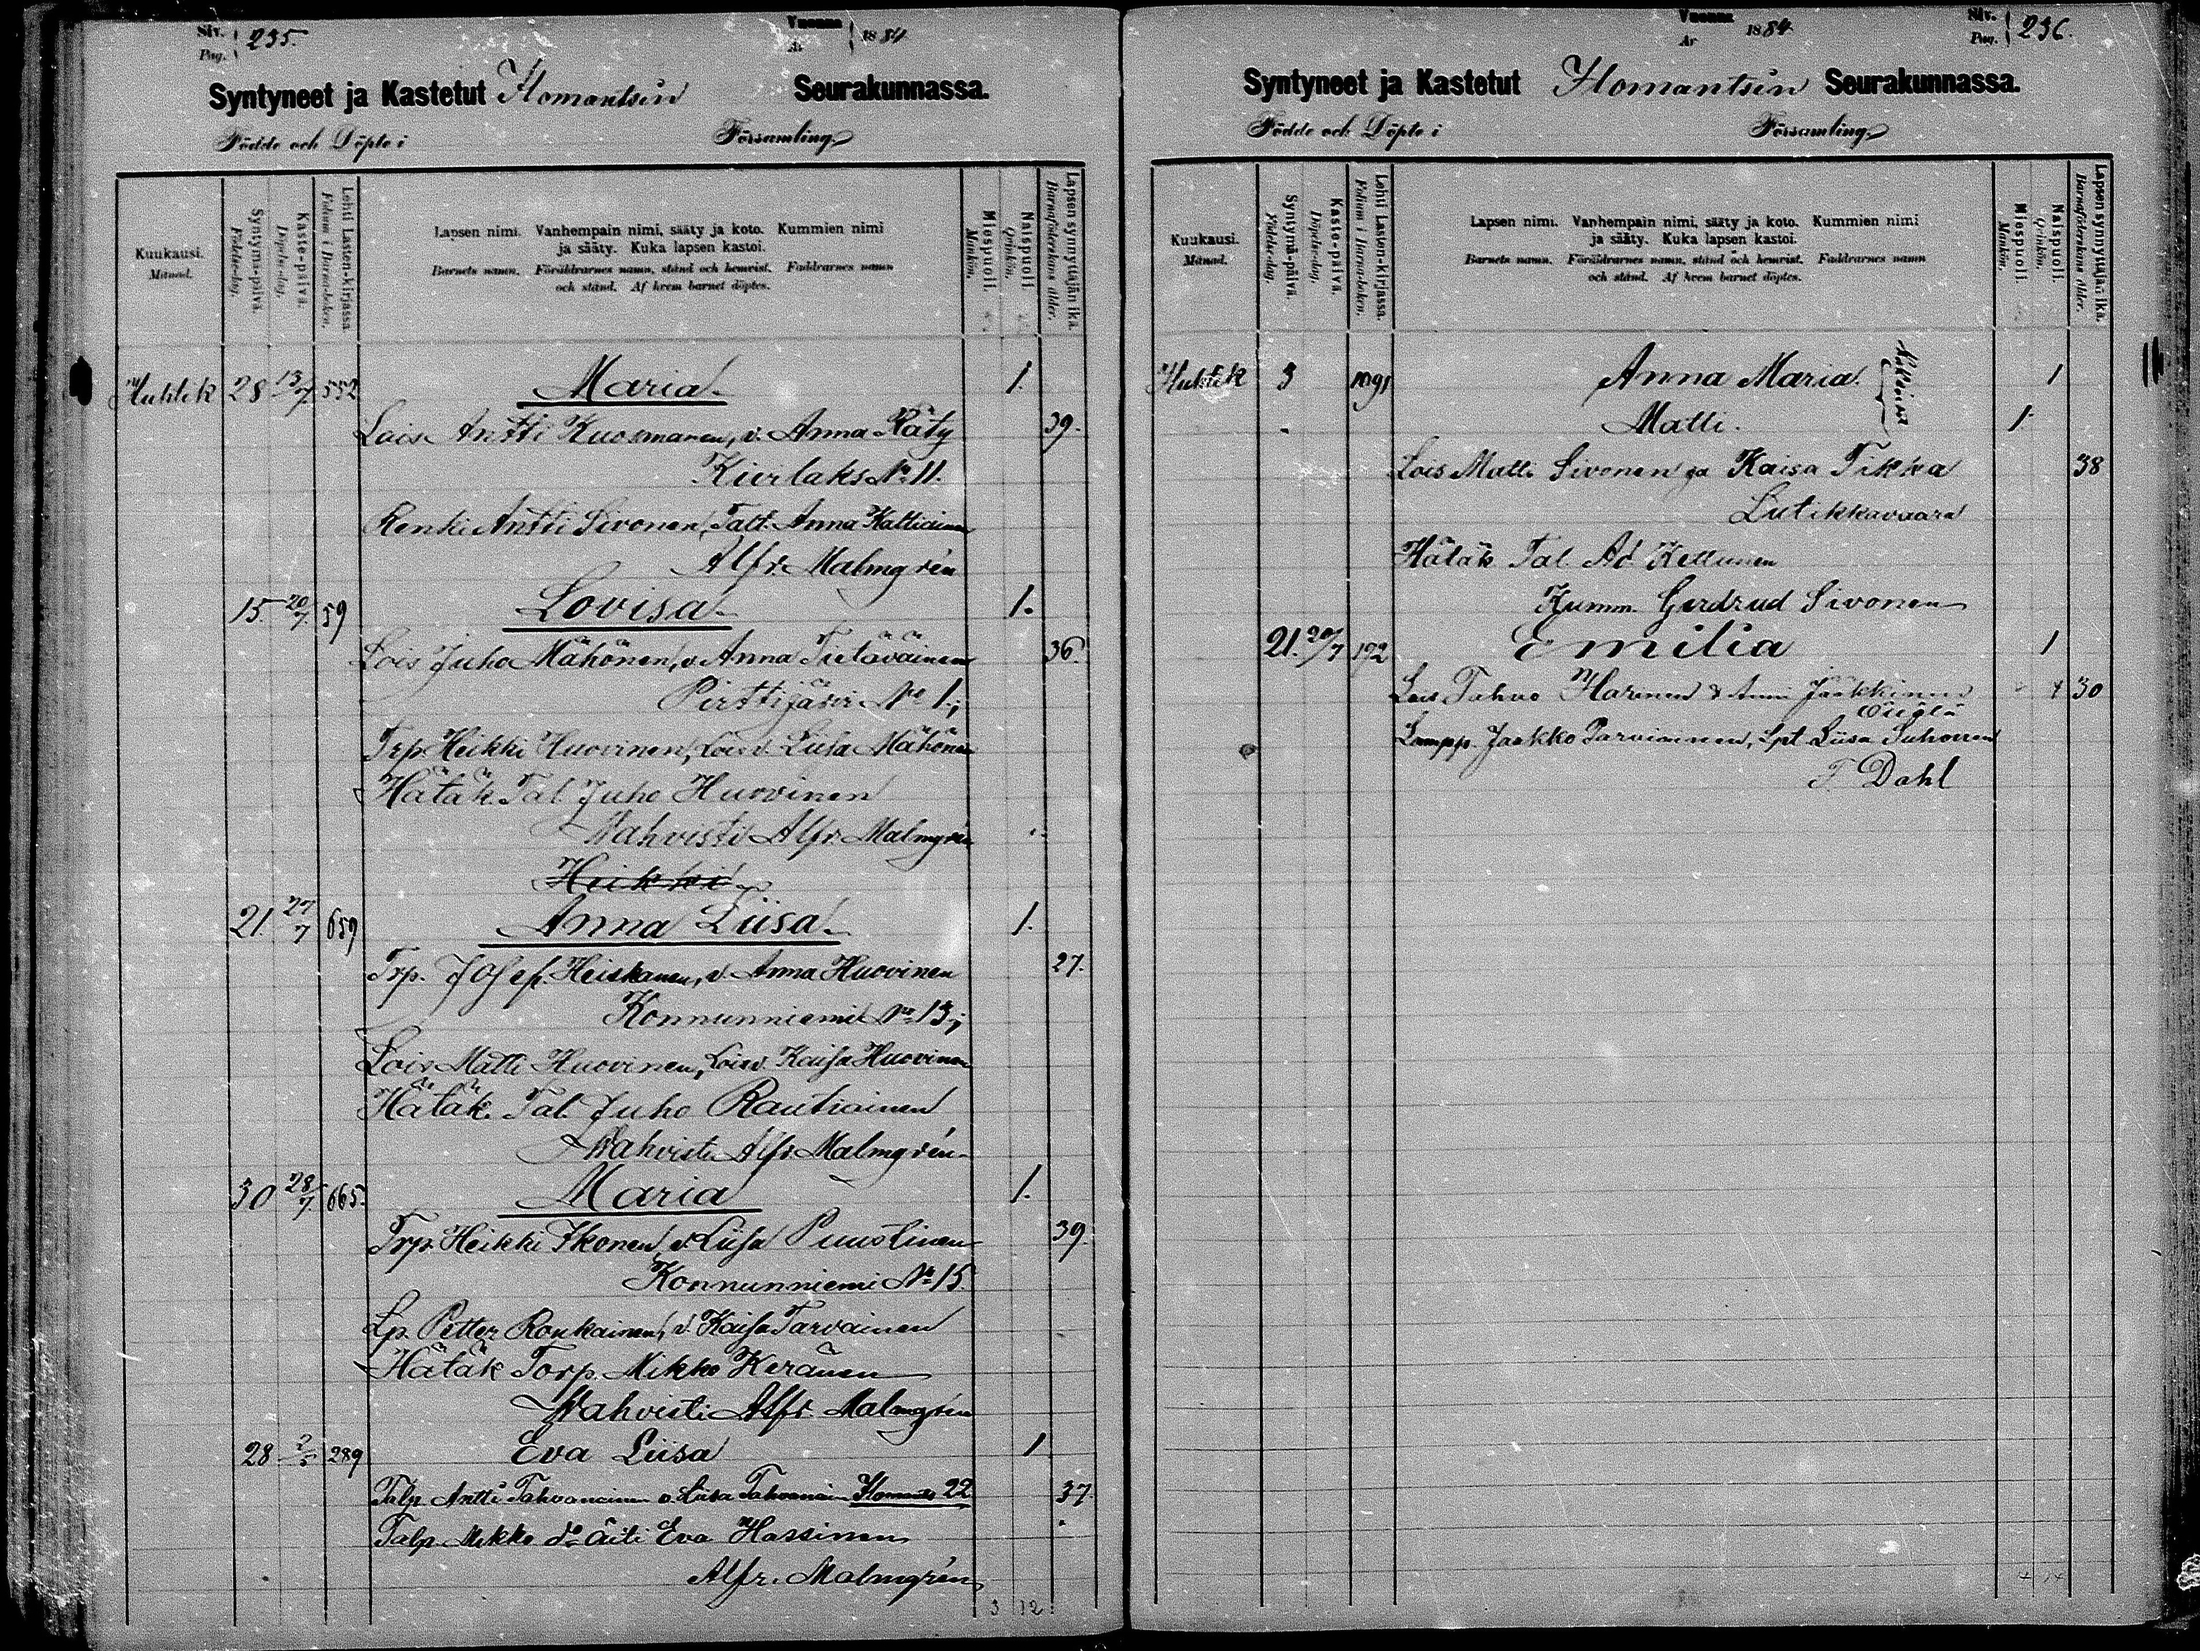 Siv. Pag. 235.
Vuonna År 1884
Syntyneet ja Kastetut Ilomantsin Seurakunnassa.
Födde och Döpte i Församling
Kuukausi. Månad.
Syntymä-päivä. Födelse-dag.
Kaste-päivä. Döpelse-dag.
Lehti Lasten-kirjassa. Folium i Barnaboken.
Lapsen nimi. Vanhempain nimi, sääty ja koto. Kummien nimi
ja sääty. Kuka lapsen kastoi.
Barnets namn. Föräldrarnes namn, stånd och hemvist. Faddrarnes namn
och stånd. Af hvem barnet döptes.
Miespuoli. Mankön.
Naispuoli. Qvinkön.
Lapsen synnyttäjän ikä. Barnaföderskans ålder.
Huhtik 28 13/7 552 Maria 1.
Lois. Antti Kuosmanen, v. Anna Räty 39.
Kivilaks No 11.
Renki Antti Sivonen, Talt. Anna Kattiainen
Alfr. Malmgrén
15. 20/7 59 Lovisa 1.
Lois Juho Mähönen, v. Anna Tietäväinen 36.
Pirttijärvi No 1.;
Trp. Heikki Huovinen, Lois v. Liisa Mähönen
Hätäk. Tal. Juho Huovinen
Wahvisti Alfr. Malmgrén
Heikki
21. 27/7 659 Anna Liisa 1.
Trp. Josef. Heiskanen, v. Anna Huovinen 27.
Konnunniemi No 13.;
Lois Matti Huovinen, Lois v. Kaisa Huovinen
Hätäk. Tal. Juho Rautiainen
Wahvisti Alfr. Malmgrén
30 28/7 665. Maria 1.
Trp. Heikki Ikonen, v. Liisa Puustinen 39.
Konnunniemi No 15.
Lp. Petter Ronkainen, v. Kaisa Tarvainen
Hätäk Torp. Mikko Keränen
Wahvisti Alfr. Malmgrén
28 289 Eva Liisa 1
Talp. Antti Tahvanainen v. Liisa Tahvanain Ilomants 22 37.
Talp. Mikko do äiti Eva Hassinen
Alfr. Malmgrén
3 12
Vuonna År 1884
Siv. Pag. 236.
Syntyneet ja Kastetut Ilomantsin Seurakunnassa.
Födde och Döpte i Församling
Kuukausi. Månad.
Syntymä-päivä. Födelse-dag.
Kaste-päivä. Döpelse-dag.
Lehti Lasten-kirjassa. Folium i Barnaboken.
Lapsen nimi. Vanhempain nimi, sääty ja koto. Kummien nimi
ja sääty. Kuka lapsen kastoi.
Barnets namn. Föräldrarnes namn, stånd och hemvist. Faddrarnes namn
och stånd. Af hvem barnet döptes.
Miespuoli. Mankön.
Naispuoli. Qvinkön.
Lapsen synnyttäjän ikä. Barnaföderskans ålder.
Huhtik 3 1091 Anna Maria. 1
Matti. Kaksoiset 1
Lois Matti Sivonen ja Kaisa Tikka 38
Lutikkavaara
Hätäk. Tal. Ad. Kettunen
Kumm. Gerdrud Sivonen
21. 20/7 192 Emilia 1
Lois Tahvo Harinen & Anni Jääkkinen 30
Lampp. Jaakko Parviainen, Lpt. Liisa Suhonen
F. Dahl